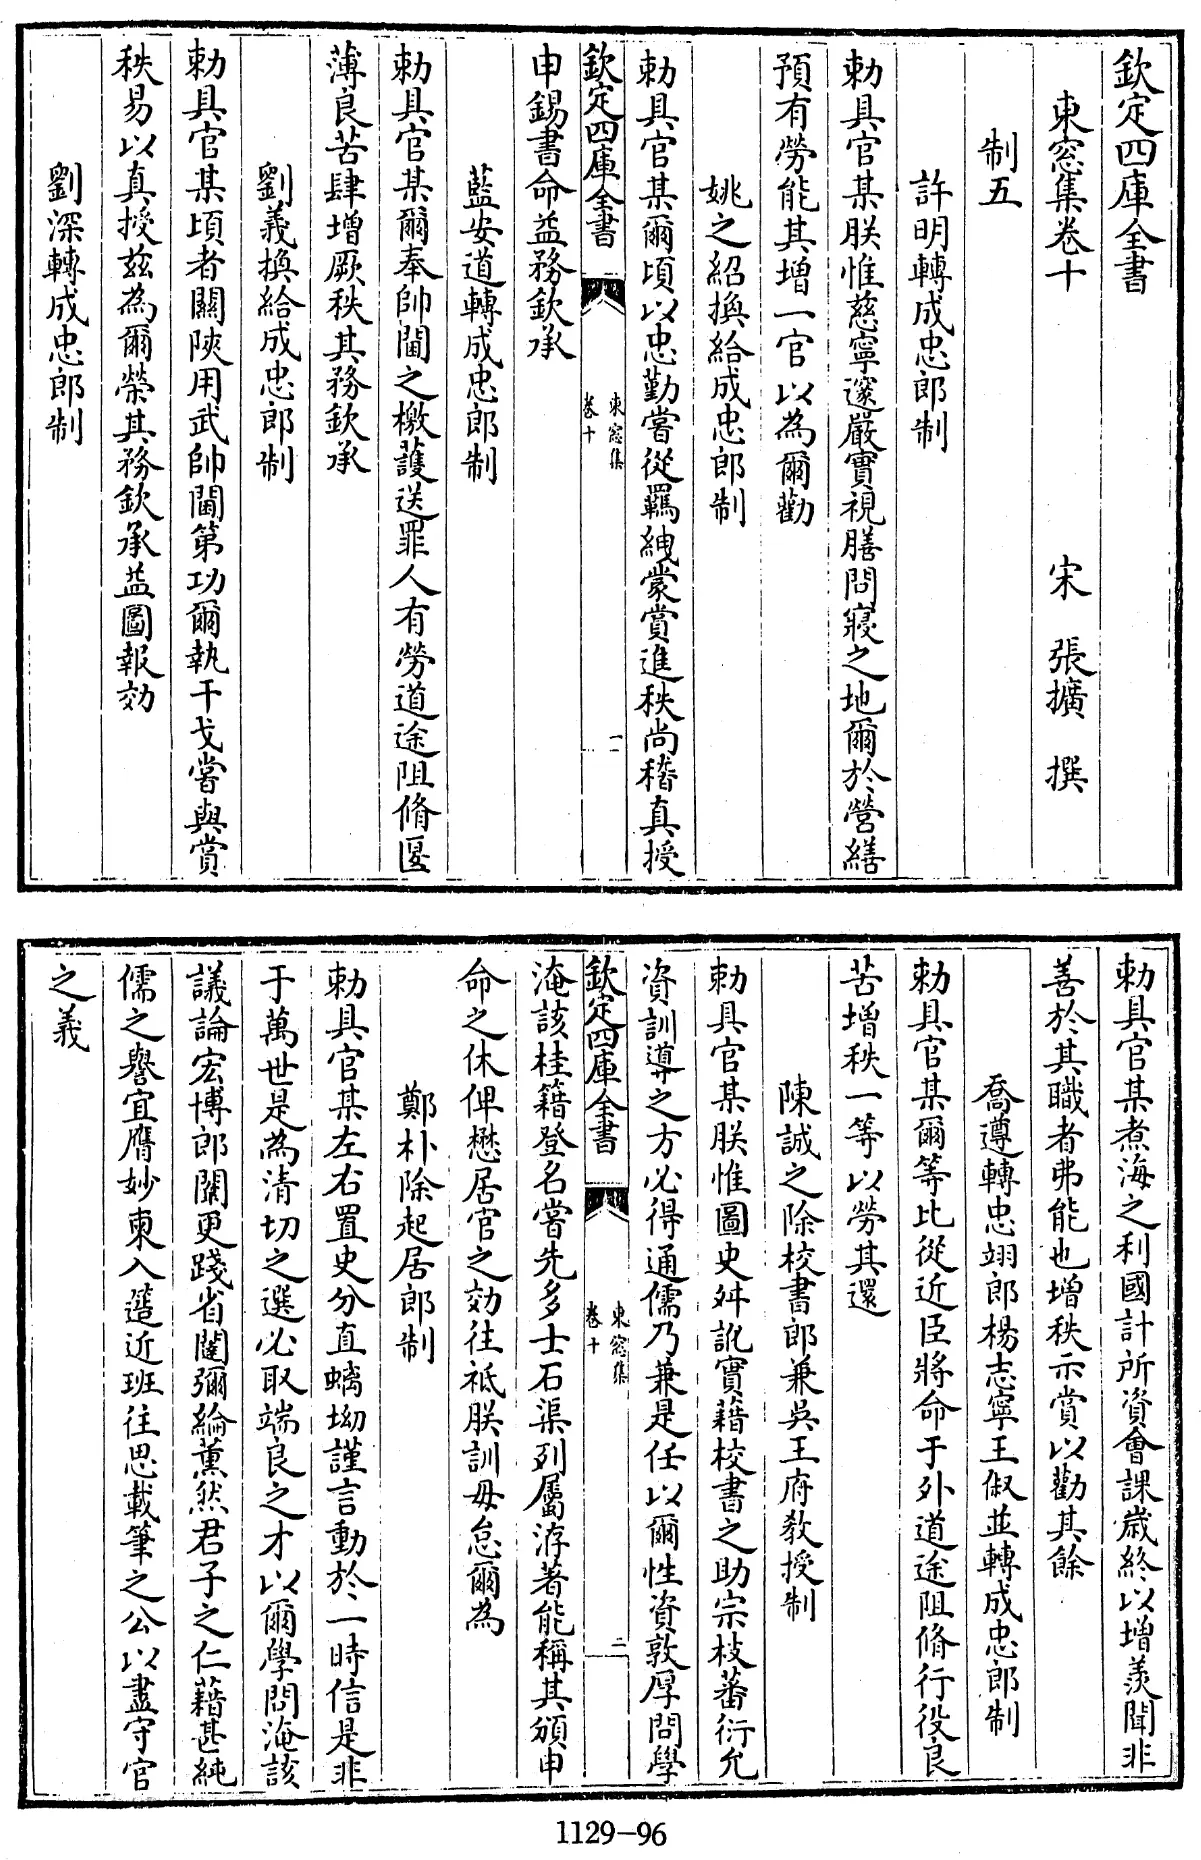 欽定四庫全書
東窓集卷十
宋 張擴 撰
制五
許明轉成忠郎制
勅具官某朕惟慈寧邃嚴實視膳問寢之地爾於營繕
預有勞能其增一官以為爾勸
姚之紹換給成忠郎制
勅具官某爾頃以忠勤嘗從羈絏蒙賞進秩尚稽真授
欽定四庫全書
東窓集
卷十
一
申錫書命益務欽承
藍安道轉成忠郎制
勅具官某爾奉帥閫之檄護送罪人有勞道途阻脩偃
薄良苦肆增厥秩其務欽承
劉義換給成忠郎制
勅具官某頃者關陜用武帥閫第功爾執干戈嘗與賞
秩易以真授兹為爾榮其務欽承益圖報効
劉深轉成忠郎制
勅具官某煮海之利國計所資會課歲終以增羨聞非
善於其職者弗能也增秩示賞以勸其餘
喬遵轉忠翊郎楊志寧王俶並轉成忠郎制
勅具官某爾等比從近臣將命于外道途阻脩行役良
苦增秩一等以勞其還
陳誠之除校書郎兼吳王府教授制
勅具官某朕惟圖史舛訛實藉校書之助宗枝蕃衍允
資訓導之方必得通儒乃兼是任以爾性資敦厚問學
欽定四庫全書
東窓集
卷十
二
淹該桂籍登名嘗先多士石渠列屬洊著能稱其頒申
命之休俾懋居官之効往祗朕訓毋怠爾為
鄭朴除起居郎制
勅具官某左右置史分直螭坳謹言動於一時信是非
于萬世是為清切之選必取端良之才以爾學問淹該
議論宏博郎闈更踐省闥彌綸薰然君子之仁藉甚純
儒之譽宜膺妙柬入簉近班往思載筆之公以盡守官
之義
1129-96